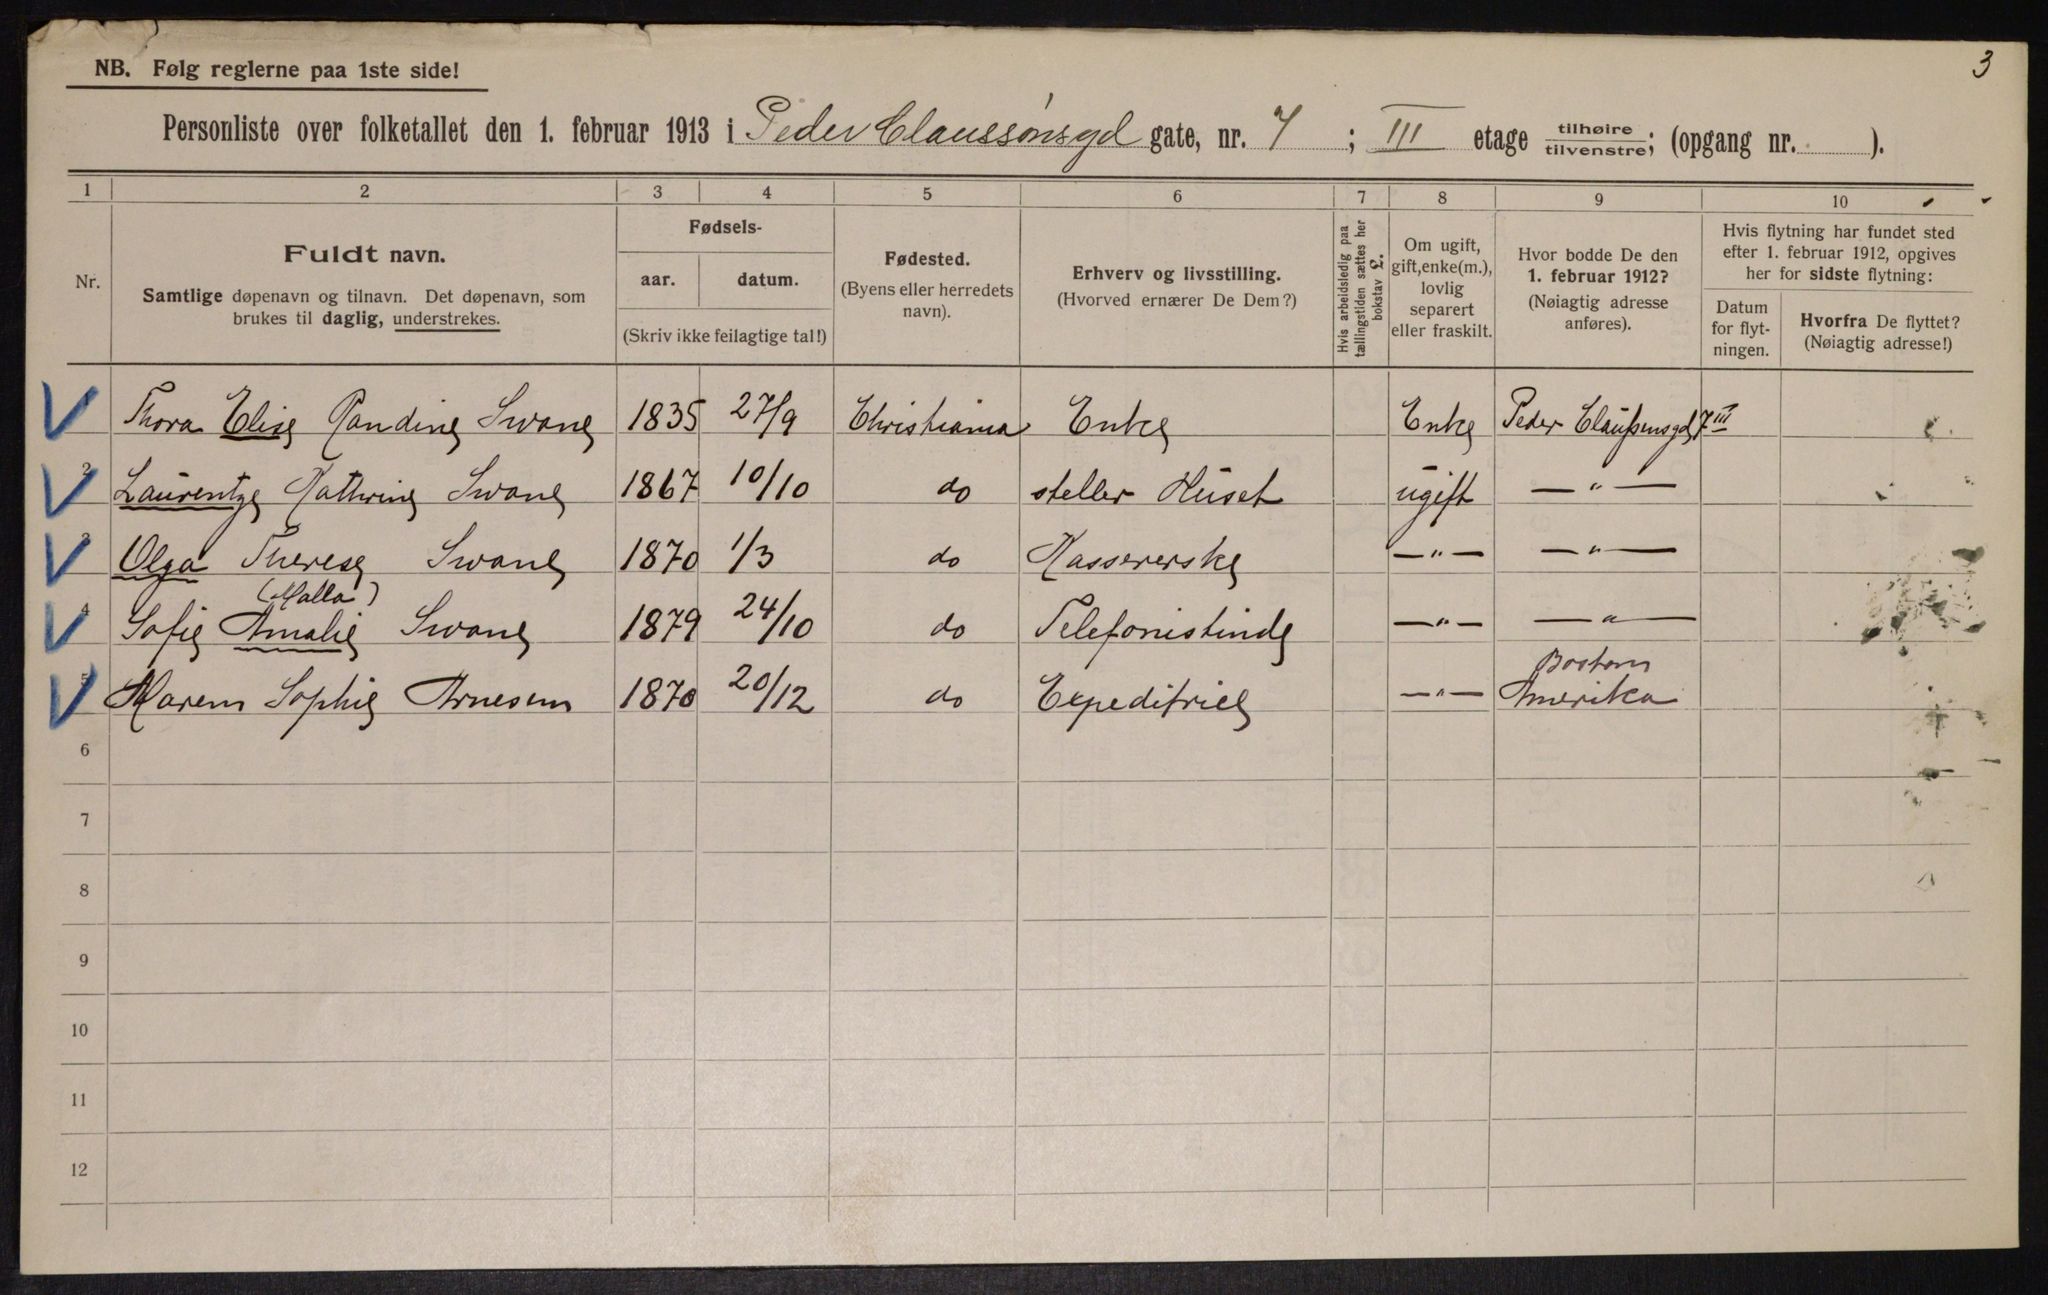 3
NB. Følg reglerne paa 1ste side!
Personliste over folketallet den 1. februar 1913 i Peder Claussønsgd gate, nr. 7 ; III etage tilhøire / tilvenstre; (opgang nr. ).
1 2 3 4 5 6 7 8 9 10
Nr.
Fuldt navn.
Samtlige døpenavn og tilnavn. Det døpenavn, som
brukes til daglig, understrekes.
Fødsels-
aar. datum.
(Skriv ikke feilagtige tal!)
Fødested.
(Byens eller herredets
navn).
Erhverv og livsstilling.
(Hvorved ernærer De Dem?)
Hvis arbeidsledig paa
tællingstiden sættes her
bokstav L.
Om ugift,
gift, enke(m.),
lovlig
separert
eller fraskilt.
Hvor bodde De den
1. februar 1912?
(Nøiagtig adresse
anføres).
Hvis flytning har fundet sted
efter 1. februar 1912, opgives
her for sidste flytning:
Datum
for flyt-
ningen.
Hvorfra De flyttet?
(Nøiagtig adresse!)
1 Thora Elise Randine Swane 1835 27/9 Christiania Enke Enke Peder Claußensgd 7 III
2 Laurentze Kathrine Swane 1867 10/10 do steller Huset ugift —"—
3 Olga Therese Swane 1870 1/3 do Kassererske —"— —"—
(Malla)
4 Sofie Amalie Swane 1879 24/10 do Telefonistinde —"— —"—
Boston
5 Karen Sophie Arnesen 1870 20/12 do Expeditrice —"— Amerika
6
7
8
9
10
11
12